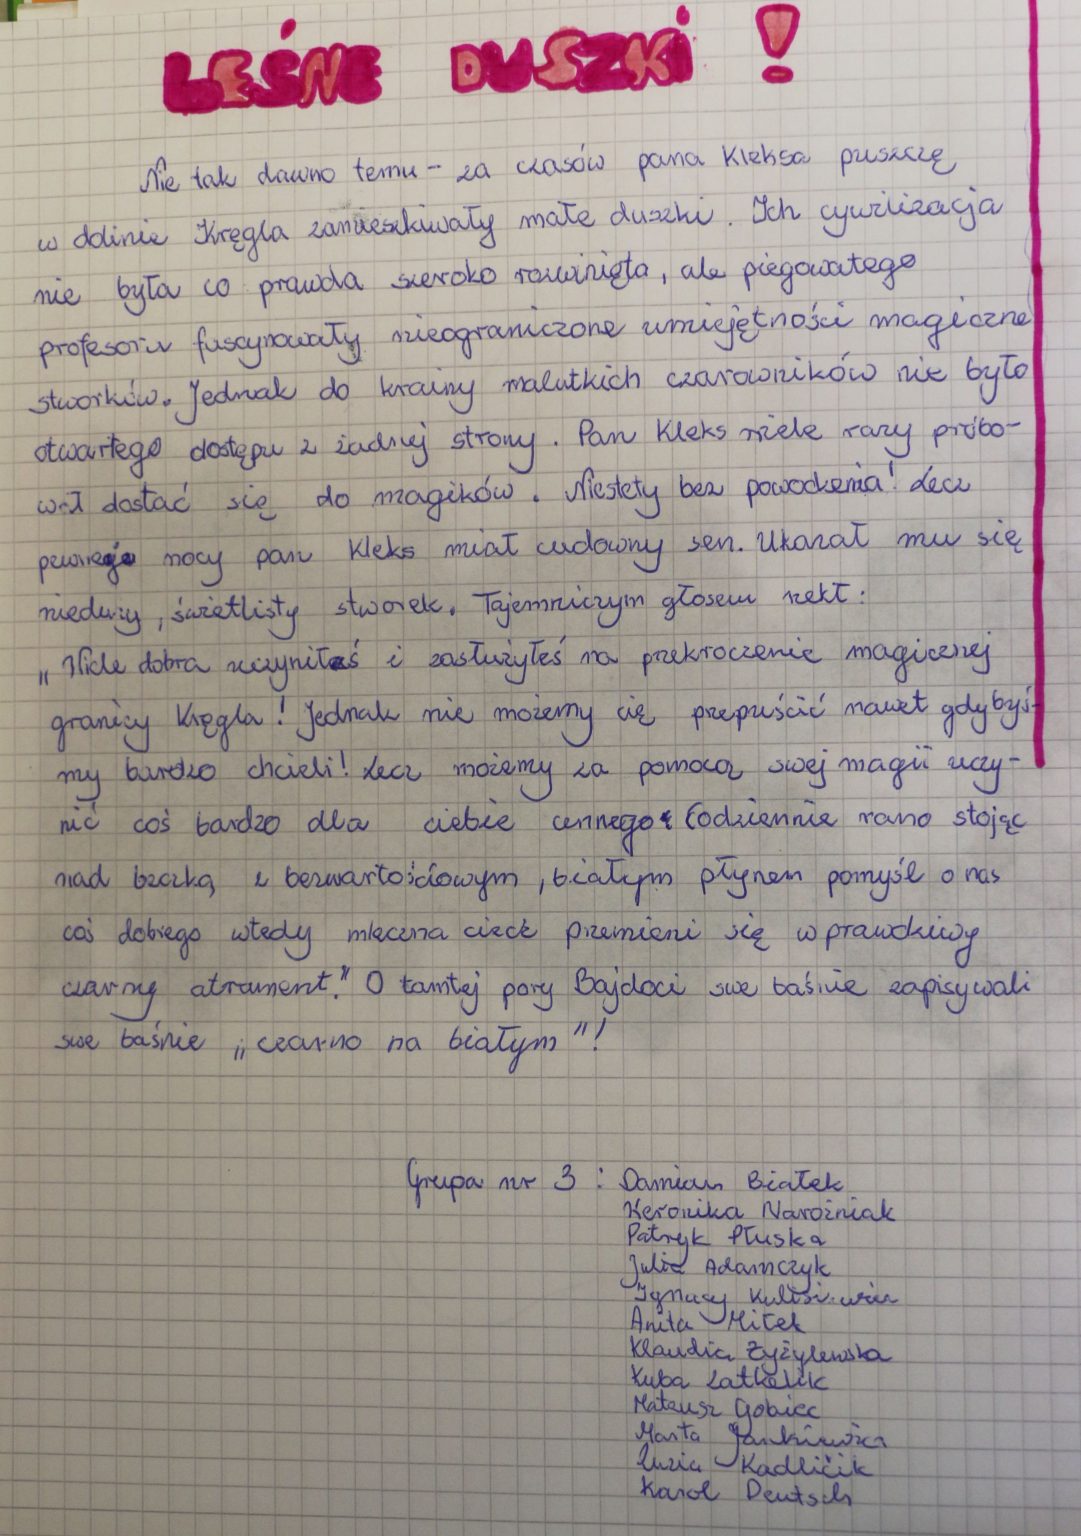 LEŚNE DUSZKI!
Nie tak dawno temu - za czasów pana Kleksa puszczę
w dolinie Kręgla zamieszkiwały małe duszki. Ich cywilizacja
nie była co prawda szeroko rozwinięta, ale piegowatego
profesora fascynowały nieograniczone umiejętności magiczne
stworków. Jednak do krainy malutkich czarowników nie było
otwartego dostępu z żadnej strony. Pan Kleks wiele razy próbo-
wał dostać się do magików. Niestety bez powodzenia! Lecz
pewnego nocy pan Kleks miał cudowny sen. Ukazał mu się
nieduży, świetlisty stworek. Tajemniczym głosem rzekł:
„Wiele dobra uczyniłeś i zasłużyłeś na przekroczenie magicznej
granicy Kręgla! Jednak nie możemy cię przepuścić nawet gdybyś-
my bardzo chcieli! Lecz możemy za pomocą swej magii uczy-
nić coś bardzo dla ciebie cennego. Codziennie rano stojąc
nad beczką z bezwartościowym, białym płynem pomyśl o nas
coś dobrego wtedy mleczna ciecz przemieni się w prawdziwy
czarny atrament." O tamtej pory Bajdoci swe baśnie zapisywali
swe baśnie „czarno na białym"!
Grupa nr 3: Damian Białek
Weronika Naroźniak
Patryk Płuska
Julia Adamczyk
Ignacy
Anita Miłek
Klaudia Żyżylewska
Kuba
Mateusz Gobiec
Marta Jankiewicz
Zuzia Kadlićik
Karol Deutsch